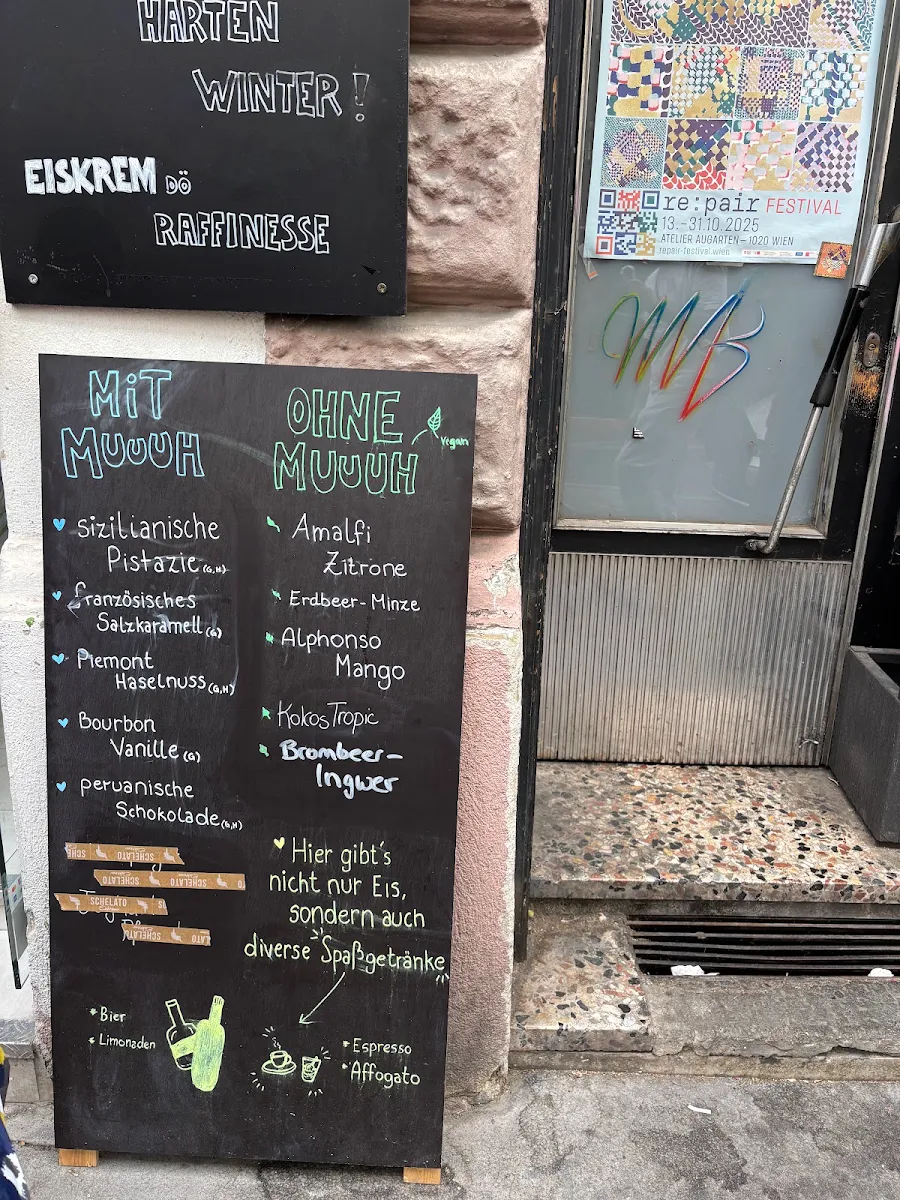 HARTEN
WINTER!
EISKREM DÖ
RAFFINESSE
MiT
MUUUH
siziLianische
Pistazie (G,H)
französisches
Salzkaramell (G)
Piemont
Haselnuss (G,H)
Bourbon
Vanille (G)
peruanische
Schokolade (G,H)
SCHELATO
SCHELATO SCHELATO
SCHELATO
SCHELATO
* Bier
* Limonaden
OHNE
MUUUH
vegan
Amalfi
Zitrone
Erdbeer-Minze
Alphonso
Mango
KokosTropic
Brombeer-
Ingwer
Hier gibt's
nicht nur Eis,
sondern auch
diverse "Spaßgetränke"
* Espresso
* Affogato
re:pair FESTIVAL
13.–31.10.2025
ATELIER AUGARTEN – 1020 WIEN
repair-festival.wien